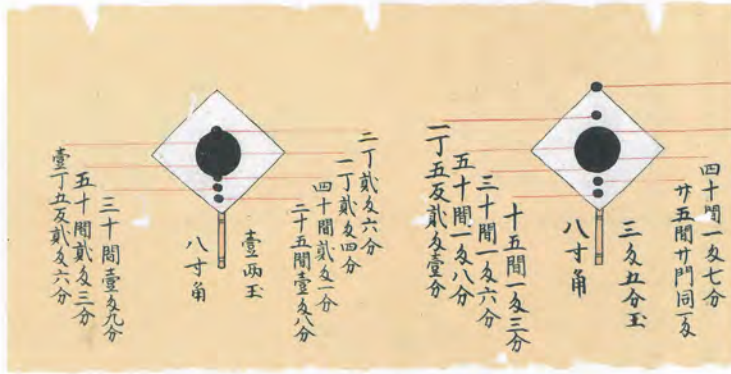 四十間一匁七分
廿五間廿門同一匁
三匁五分玉
八寸角
十五間一匁三分
三十間一匁六分
五十間一匁八分
一丁五反貳匁壹分
二丁貳匁六分
一丁貳匁四分
四十間貳匁一分
二十五間壹匁八分
壹兩玉
八寸角
三十間壹匁九分
五十間貳匁三分
壹丁五反貳匁六分